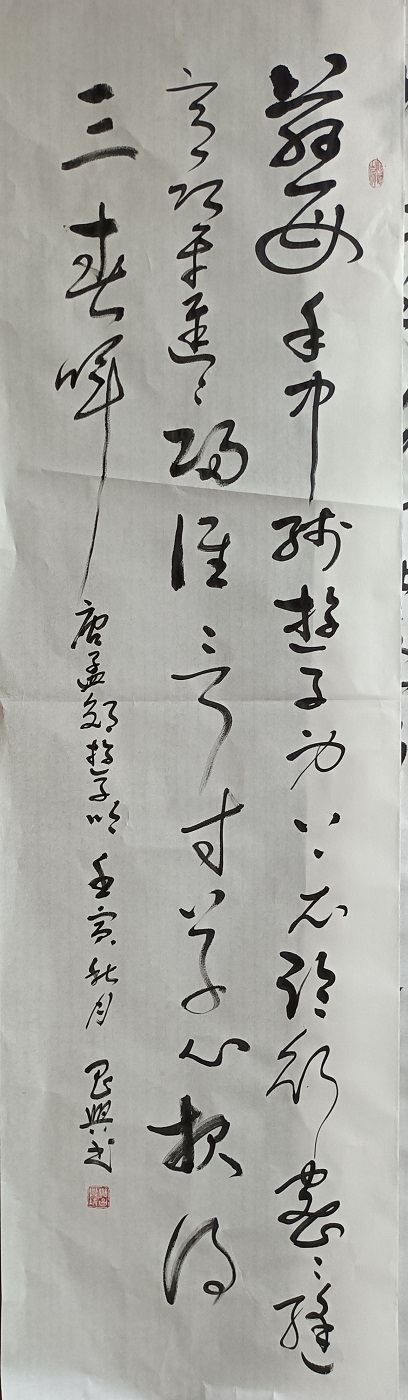 慈母手中线遊子身上衣临行密〻缝
意恐遲〻歸谁言寸草心报得
三春晖
唐孟郊遊子吟 壬寅秋月 书